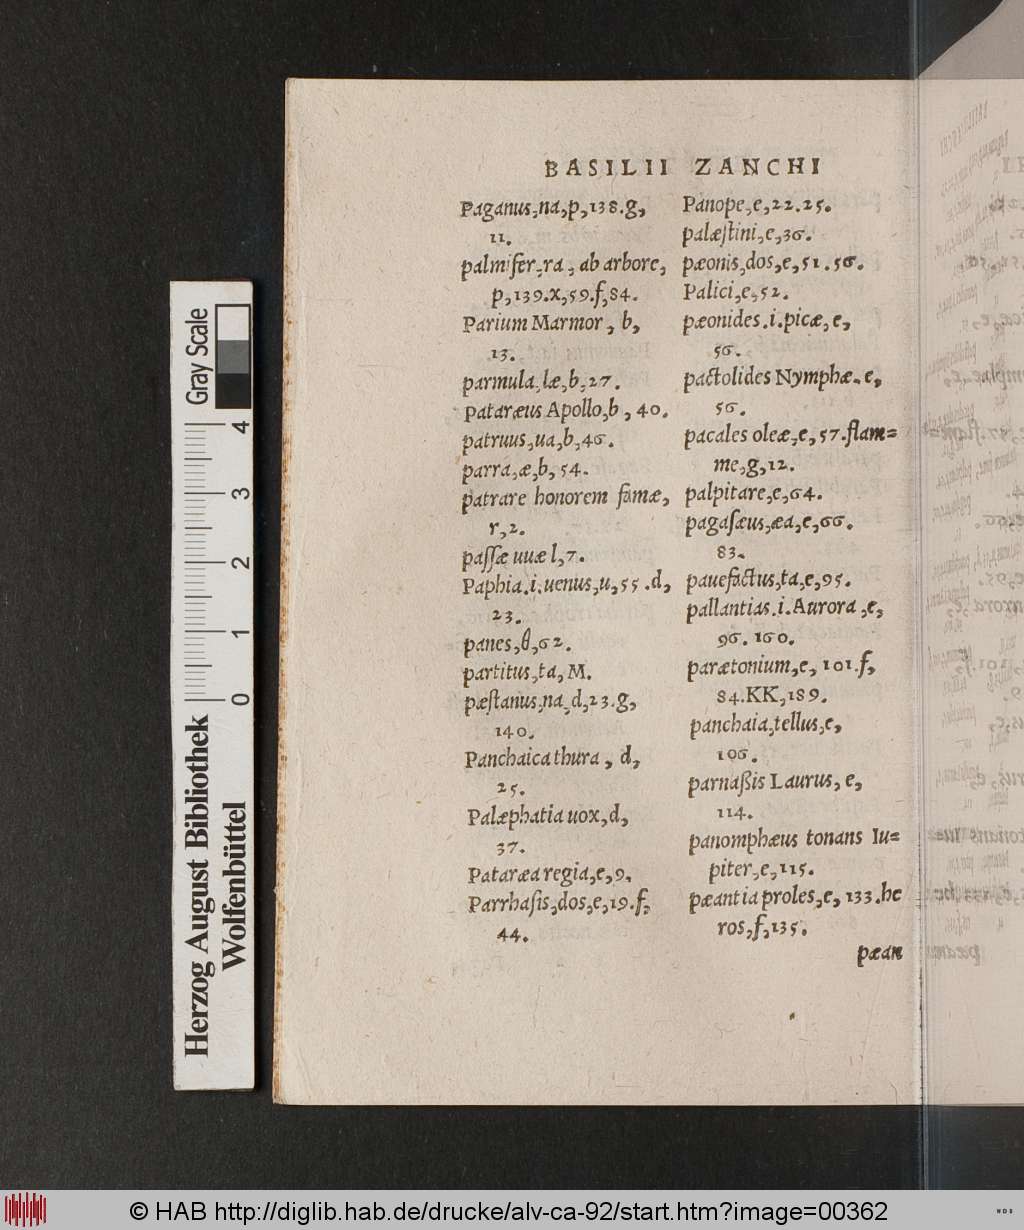 BASILII ZANCHI
Paganus,na,p,138.g,
11.
palmifer,ra, ab arbore,
p,139.x,59.f,84.
Parium Marmor, b,
13.
parmula,læ,b,27.
Pataræus Apollo,b, 40.
patruus,ua,b,46.
parra,æ,b, 54.
patrare honorem famæ,
r,2.
passæ uuæ l,7.
Paphia.i.uenus,u,55.d,
23.
panes,θ,62.
partitus,ta, M.
pæstanus,na,d,23.g,
140.
Panchaica thura, d,
25.
Palæphatia uox,d,
37.
Pataræa regia,e,9.
Parrhasis,dos,e,19.f,
44.
Panope,e,22.25.
palæstini,e,36.
pæonis,dos,e,51.56.
Palici,e,52.
pæonides.i.picæ,e,
56.
pactolides Nymphæ.e,
56.
pacales oleæ,e,57.flam=
me,g,12.
palpitare,e,64.
pagasæus,æa,e,66.
83.
pauefactus,ta,e,95.
pallantias.i.Aurora,e,
96.160.
parætonium,e,101.f,
84.KK,189.
panchaia,tellus,e,
106.
parnaßis Laurus, e,
114.
panomphæus tonans Iu=
piter,e,115.
pæantia proles,e,133.he
ros,f,135.
pæan
Gray Scale
4
3
2
1
0
Herzog August Bibliothek
Wolfenbüttel
© HAB http://diglib.hab.de/drucke/alv-ca-92/start.htm?image=00362
WDB